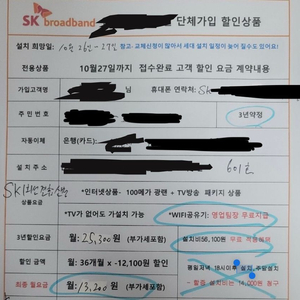 SK broadband 단체가입 할인상품
설치 희망일: 10월 26일~27일 참고. 교체신청이 많아서 세대 설치 일정이 늦어 질수도있어요!
전용상품 10월27일까지 접수완료 고객 할인 요금 계약내용
가입고객명 님 휴대폰 연락처: SK
주 민 번 호 3년약정
자동이체 은행(카드):
설 치 주 소 601호
*인터넷상품- 100메가 광랜 + TV방송 패키지 상품
상품요금
*TV가 없어도 가설치 가능 *WIFI공유기: 영업팀장 무료지급
3년할인요금 월: 25,300원 (부가세포함) 설치비56,100원 무료 적용혜택
할인 금액 월: 36개월 x -12,100원 할인 평일저녁 18시이후 설치, 주말설치
최종 월요금 월: 13,200원 (부가세포함) - 할증 설치비는 14,000원 청구